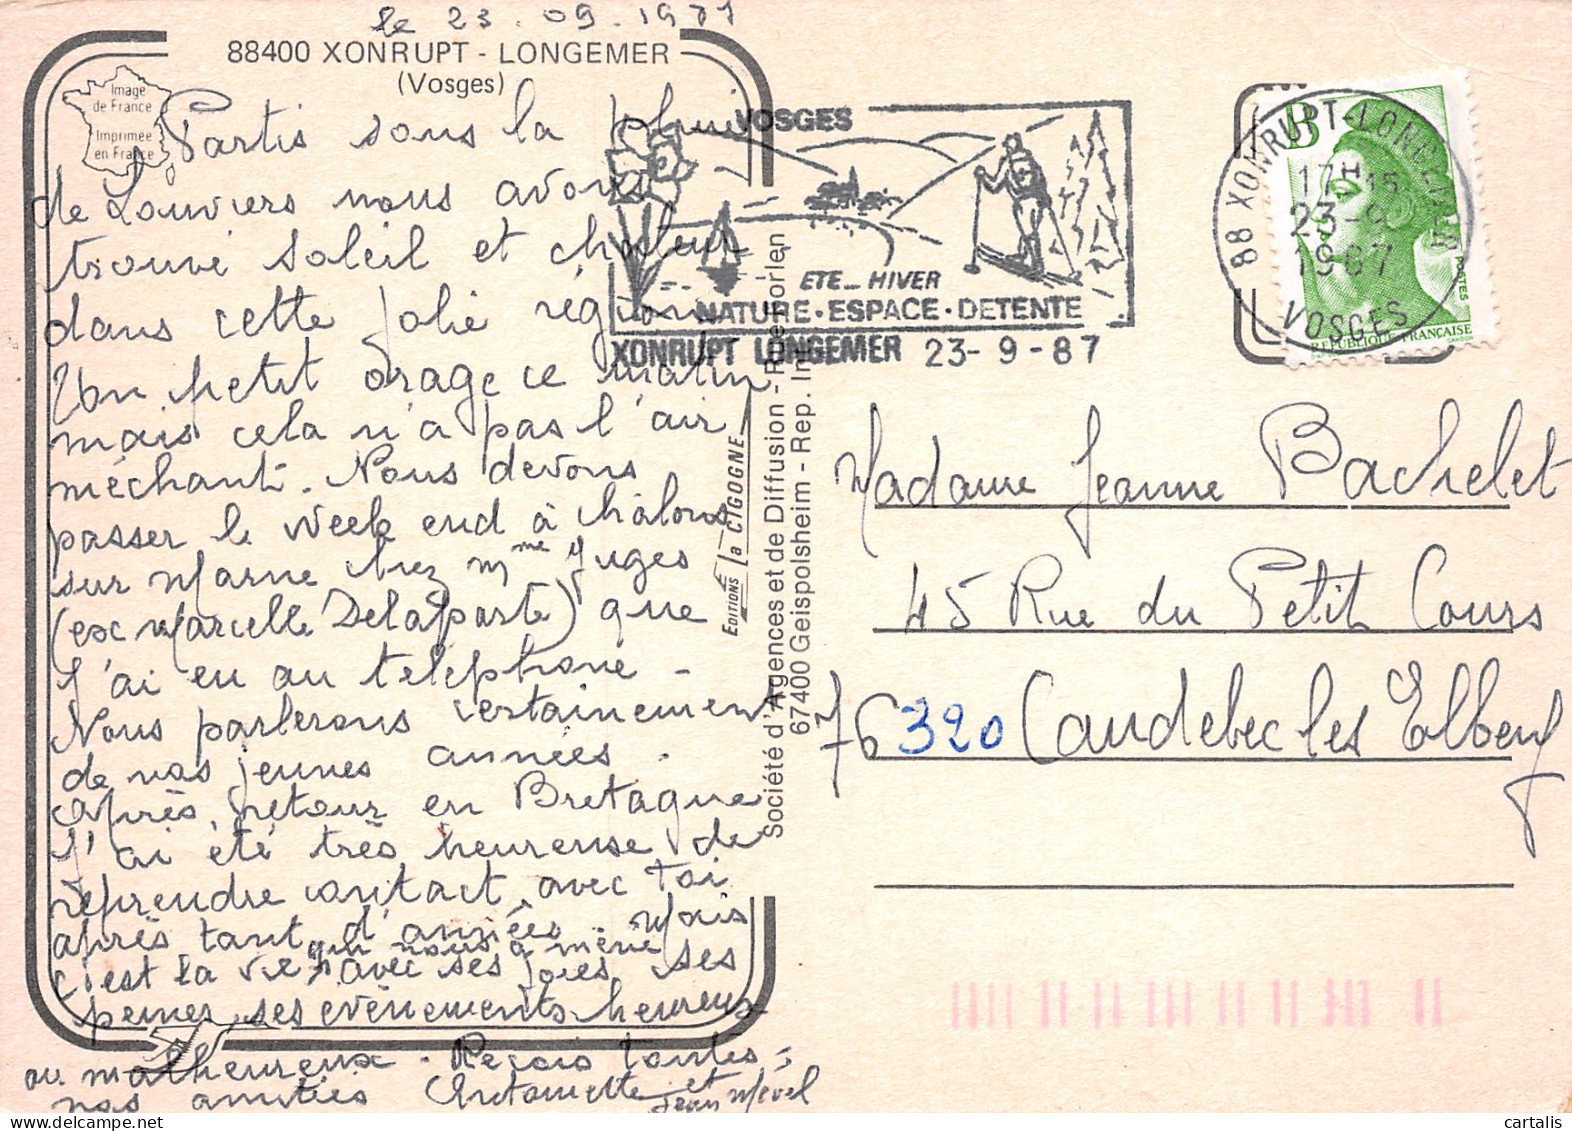 le 23.09.1987
88400 XONRUPT - LONGEMER
(Vosges)
Image
de France
Imprimée
en France
Partis sous la pluie
de Louviers nous avons
trouvé soleil et chaleur
dans cette jolie région
Un petit orage ce matin
mais cela n'a pas l'air
méchant. Nous devons
passer le week end à châlons
sur Marne chez Mme Juges
(ex Marcelle Delaporte) que
j'ai eu au telephone -
Nous parlerons certainement
de nos jeunes années.
Après retour en Bretagne
j'ai été très heureuse de
reprendre contact avec toi
après tant d'années. Mais
c'est la vie qui nous a mené
avec ses joies ses
peines, ses evènements heureux
ou malheureux. Reçois toutes
nos amitiés Antoinette et
Jean
EDITIONS la CIGOGNE
Société d'Agences et de Diffusion - R. de Morlen
67400 Geispolsheim - Rep. Int.
VOSGES
ETE - HIVER
NATURE · ESPACE · DETENTE
XONRUPT LONGEMER 23-9-87
88 XONRUPT-LONGEMER
17H15
23-9
1987
VOSGES
B
POSTES
REPUBLIQUE FRANÇAISE
GANDON
Madame Jeanne Bachelet
45 Rue du Petit Cours
76320 Caudebec les Elbeuf
cartalis